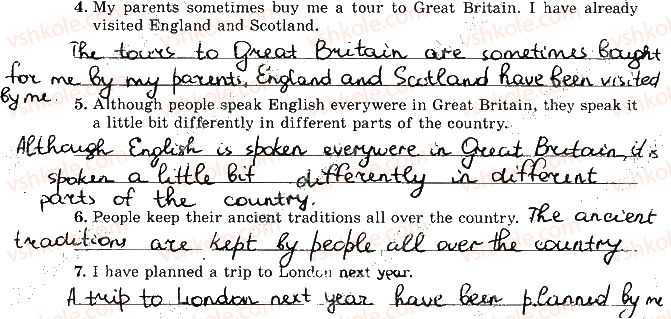 4. My parents sometimes buy me a tour to Great Britain. I have already
visited England and Scotland.
The tours to Great Britain are sometimes bought
for me by my parents. England and Scotland have been visited
by me.
5. Although people speak English everywere in Great Britain, they speak it
a little bit differently in different parts of the country.
Although English is spoken everywere in Great Britain, it is
spoken a little bit differently in different
parts of the country.
6. People keep their ancient traditions all over the country. The ancient
traditions are kept by people all over the country
7. I have planned a trip to London next year.
A trip to London next year have been planned by me